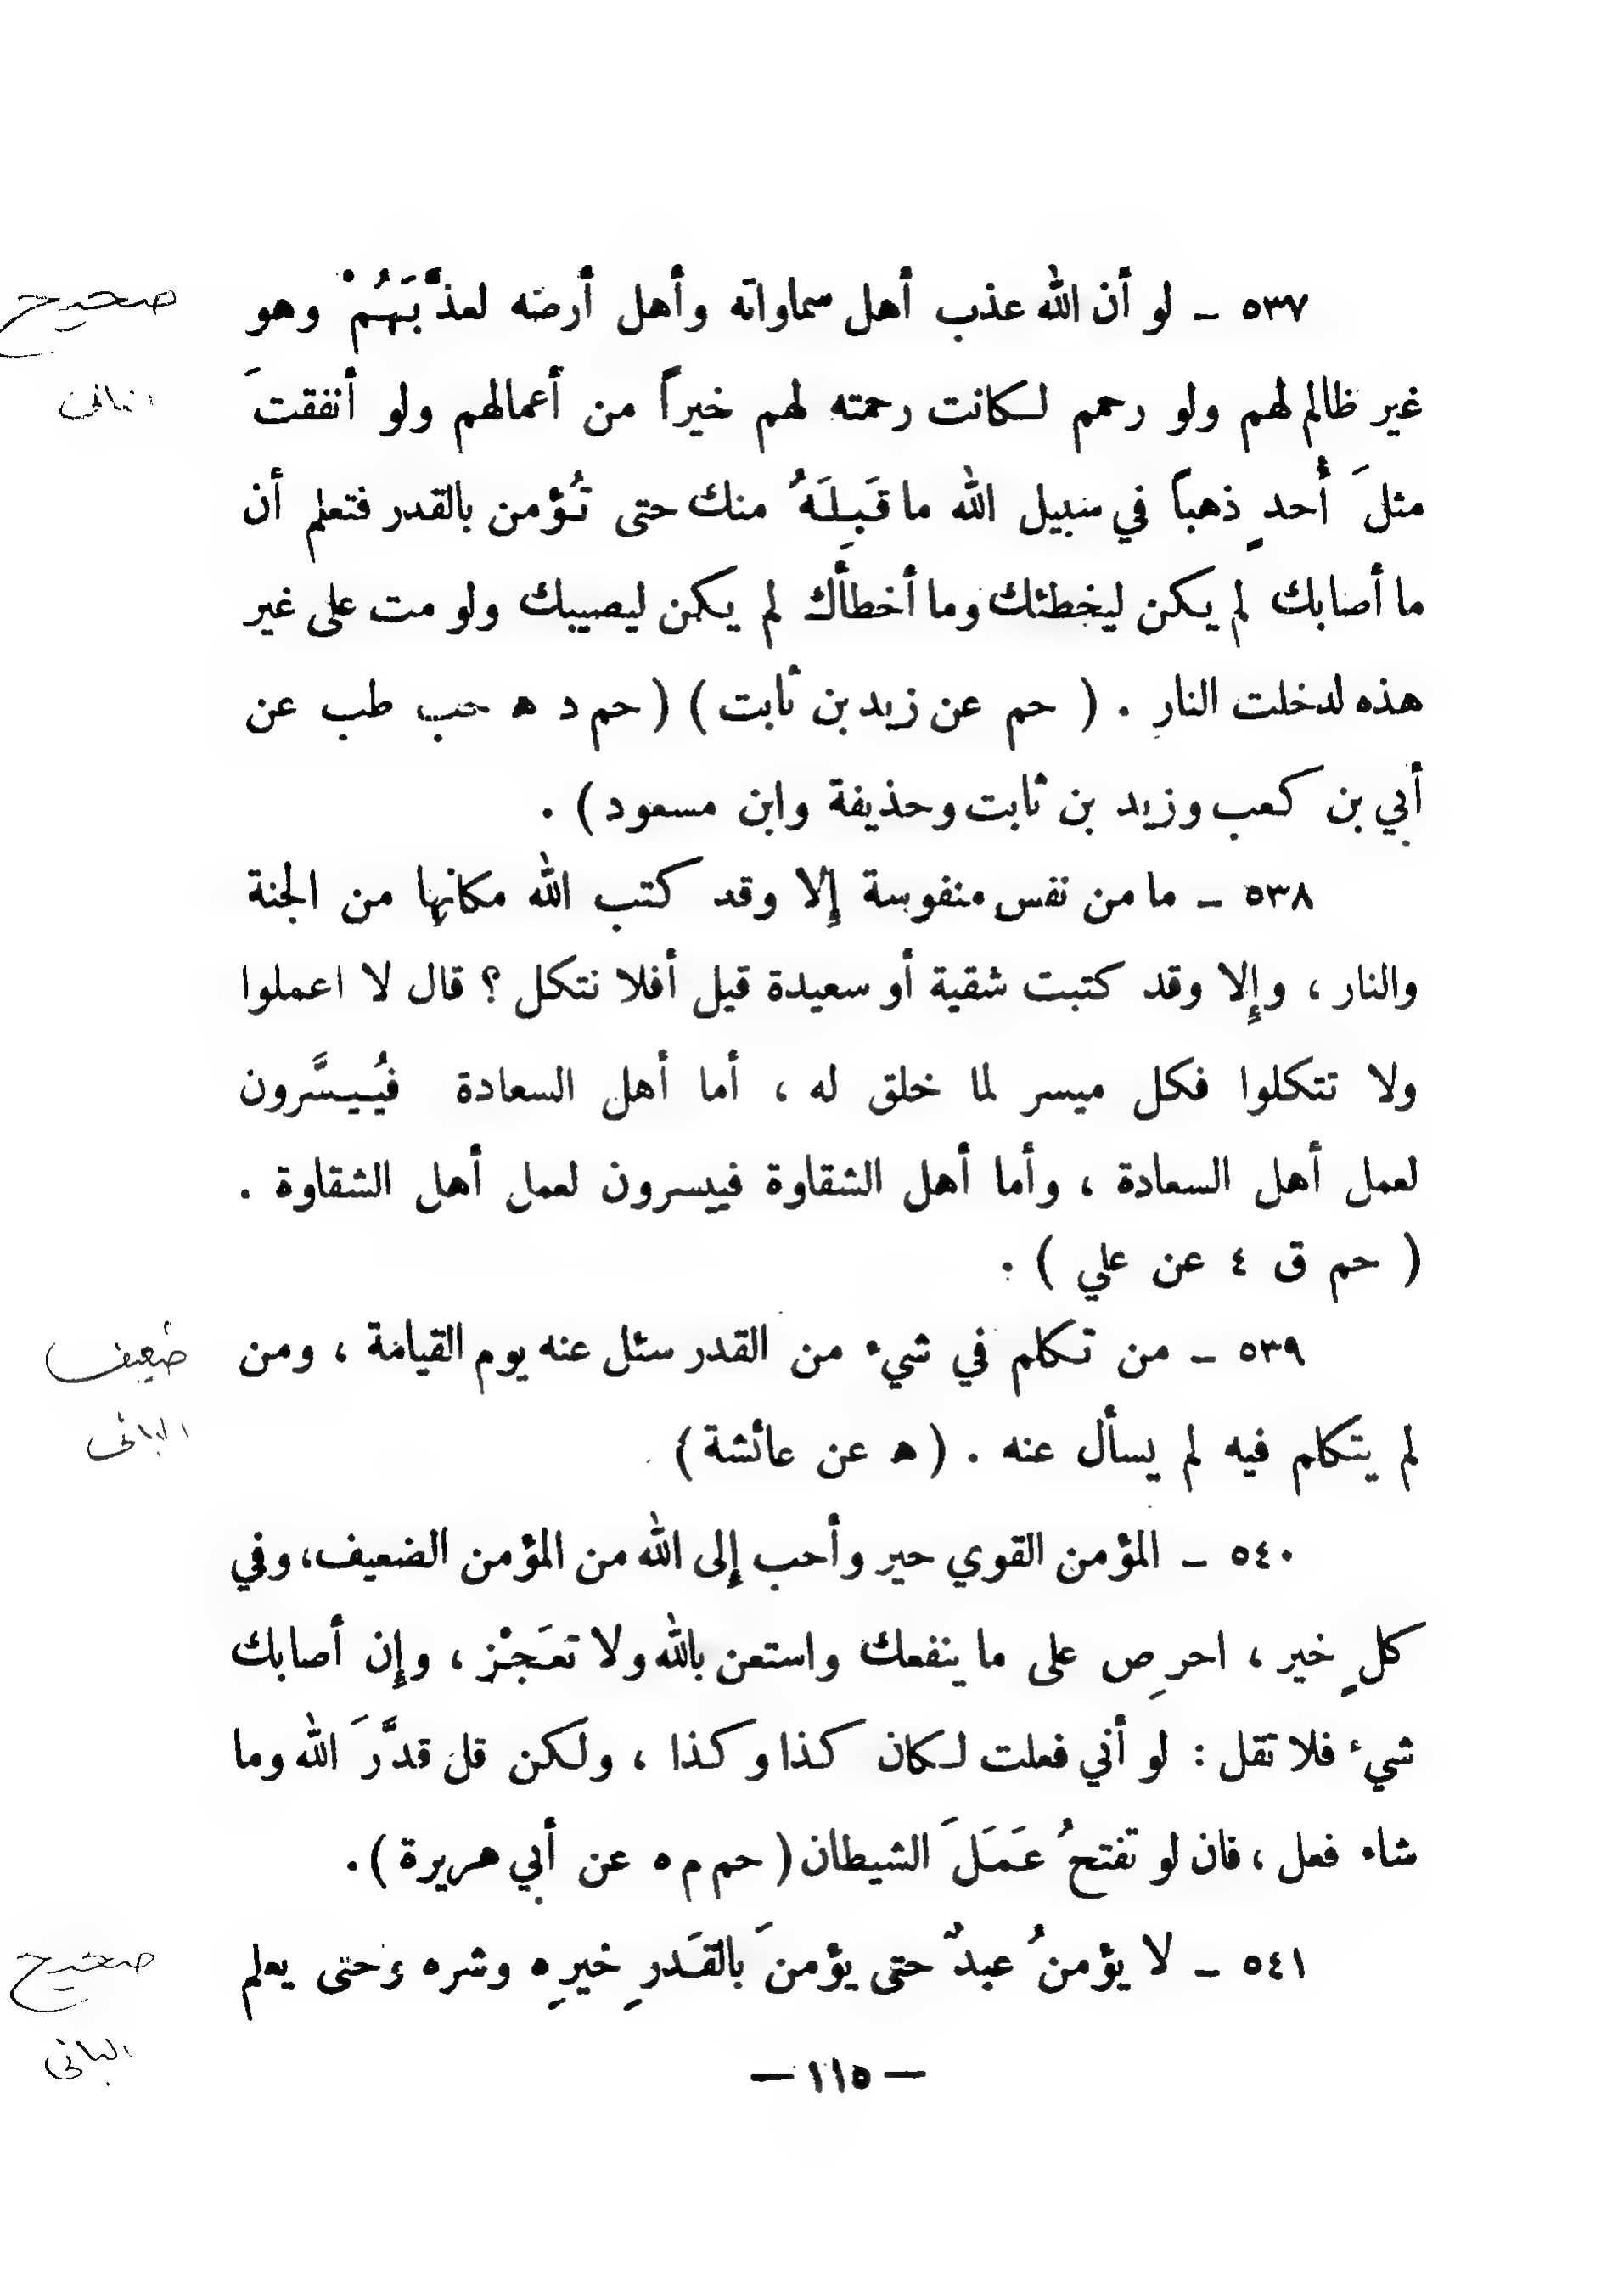 ٥٣٧ ــ لو أن الله عذب أهل سماواته وأهل أرضه لعذَّبَهُمْ وهو
صحيح
غير ظالم لهم ولو رحمم لكانت رحمته لهم خيراً من أعمالهم ولو أنفقتَ
مثلَ أُحدٍ ذهباً في سبيل الله ما قَبِلَهُ منك حتى تُؤمن بالقدر فتعلم أن
ما أصابك لم يكن ليخطئك وما أخطأك لم يكن ليصيبك ولو مت على غير
هذه لدخلت النار . ( حم عن زيد بن ثابت ) ( حم د ه حب طب عن
أبي بن كعب وزيد بن ثابت وحذيفة وابن مسعود ) .
٥٣٨ ــ ما من نفس منفوسة إلا وقد كتب الله مكانها من الجنة
والنار ، وإلا وقد كتبت شقية أو سعيدة قيل أفلا نتكل ؟ قال لا اعملوا
ولا تتكلوا فكل ميسر لما خلق له ، أما أهل السعادة فيُيسَّرون
لعمل أهل السعادة ، وأما أهل الشقاوة فييسرون لعمل أهل الشقاوة .
( حم ق ٤ عن علي ) .
٥٣٩ ــ من تكلم في شيء من القدر سئل عنه يوم القيامة ، ومن
ضعيف
لم يتكلم فيه لم يسأل عنه . ( ه عن عائشة )
البانى
٥٤٠ ــ المؤمن القوي حير وأحب إلى الله من المؤمن الضعيف، وفي
كلٍ خير ، احرِص على ما ينفعك واستعن بالله ولا تعَجْز ، وإن أصابك
شيء فلا تقل : لو أني فعلت لكان كذا وكذا ، ولكن قل قدَّرَ الله وما
شاء فعل ، فان لو تفتحُ عَمَلَ الشيطان ( حم م ه عن أبي هريرة ) .
٥٤١ ــ لا يؤمنُ عبدٌ حتى يؤمنَ بالقَدرِ خيرِه وشره وحتى يعلم
صحيح
البانى
— ١١٥ —